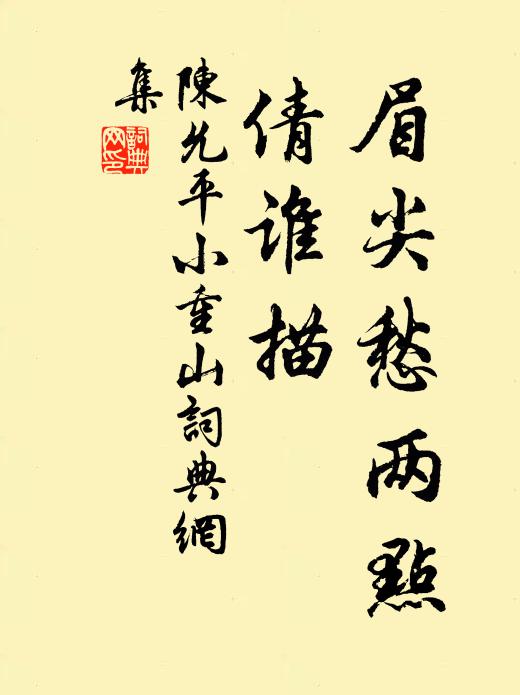 眉尖愁两點
倩谁描
陳允平小重山詞典網
集
詞典网印